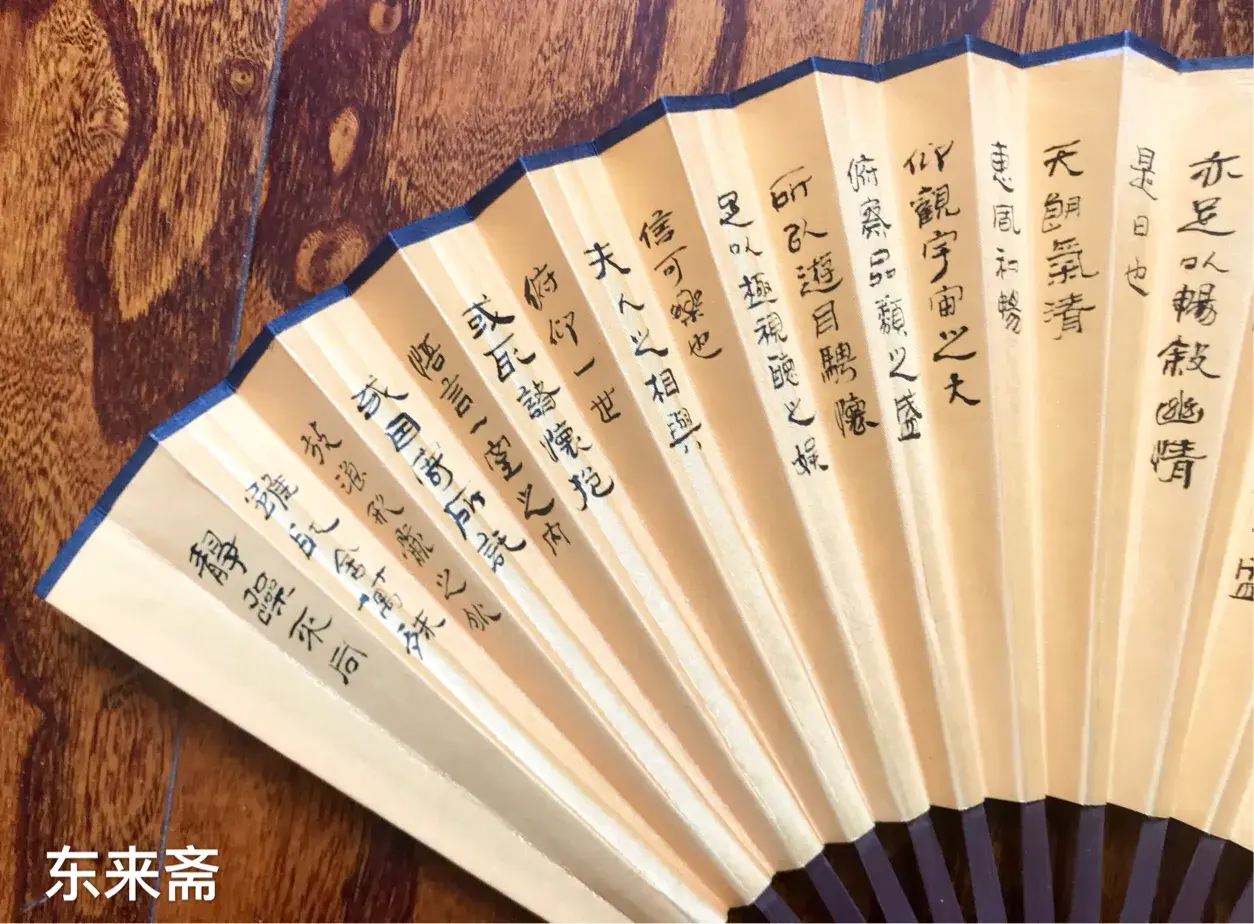 亦足以暢敘幽情
是日也
天朗氣清
惠風和暢
仰觀宇宙之大
俯察品類之盛
所以遊目騁懷
足以極視聽之娛
信可樂也
夫人之相與
俯仰一世
或取諸懷抱
悟言一室之內
或因寄所託
放浪形骸之外
雖趣舍萬殊
靜躁不同
东来斋